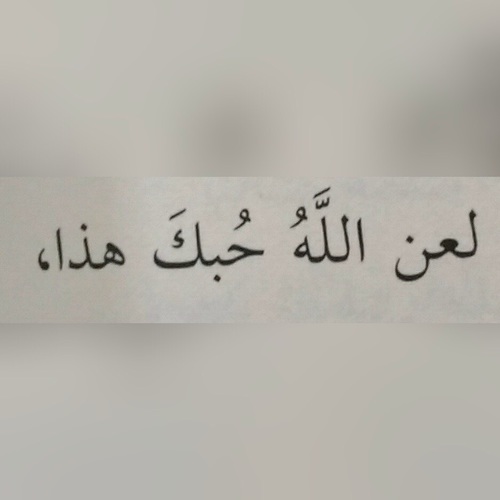 لعن اللَّهُ حُبكَ هذا،